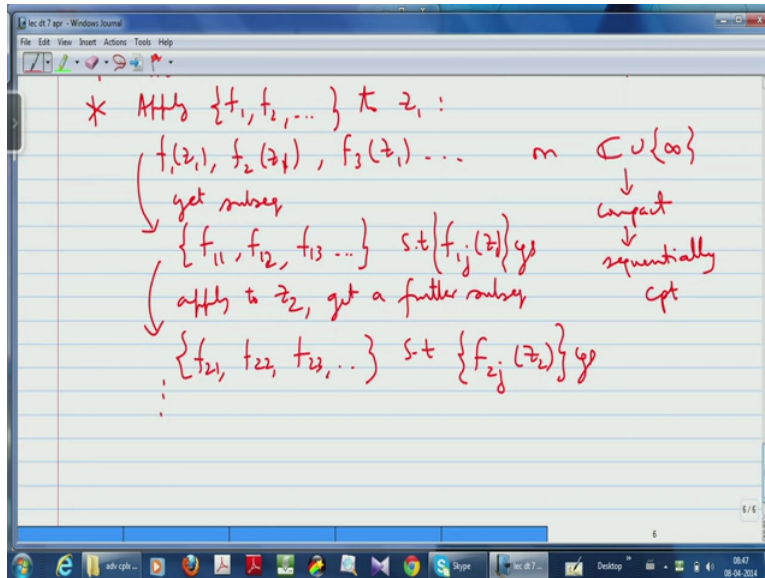 lec dt 7 apr - Windows Journal
File Edit View Insert Actions Tools Help
* Apply {f₁, f₂, ...} to z₁ :
f₁(z₁), f₂(z₁), f₃(z₁) ... in ℂ ∪ {∞}
↓
get subseq compact
↓
{f₁₁, f₁₂, f₁₃ ...} s.t {f₁ⱼ(z₁)} cgs sequentially
apply to z₂, get a further subseq cpt
{f₂₁, f₂₂, f₂₃, ..} s.t {f₂ⱼ(z₂)} cgs
⋮
6/6
6
adv cplx ...
Skype
lec dt 7 ...
Desktop
08:47
08-04-2014